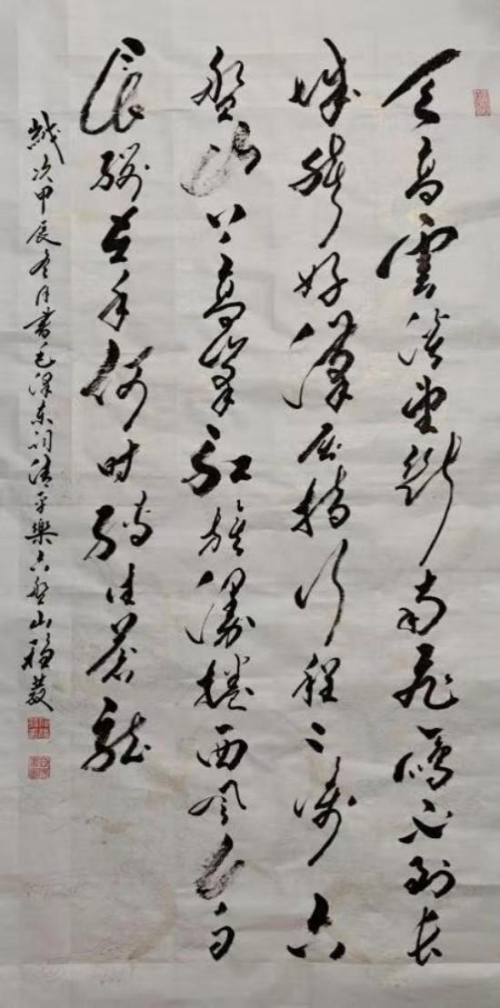 天高雲淡望斷南飛雁不到長
城非好漢屈指行程二萬六
盤山上高峰紅旗漫捲西風今日
長纓在手何時縛住蒼龍
歲次甲辰冬月書毛澤東詞清平樂六盤山